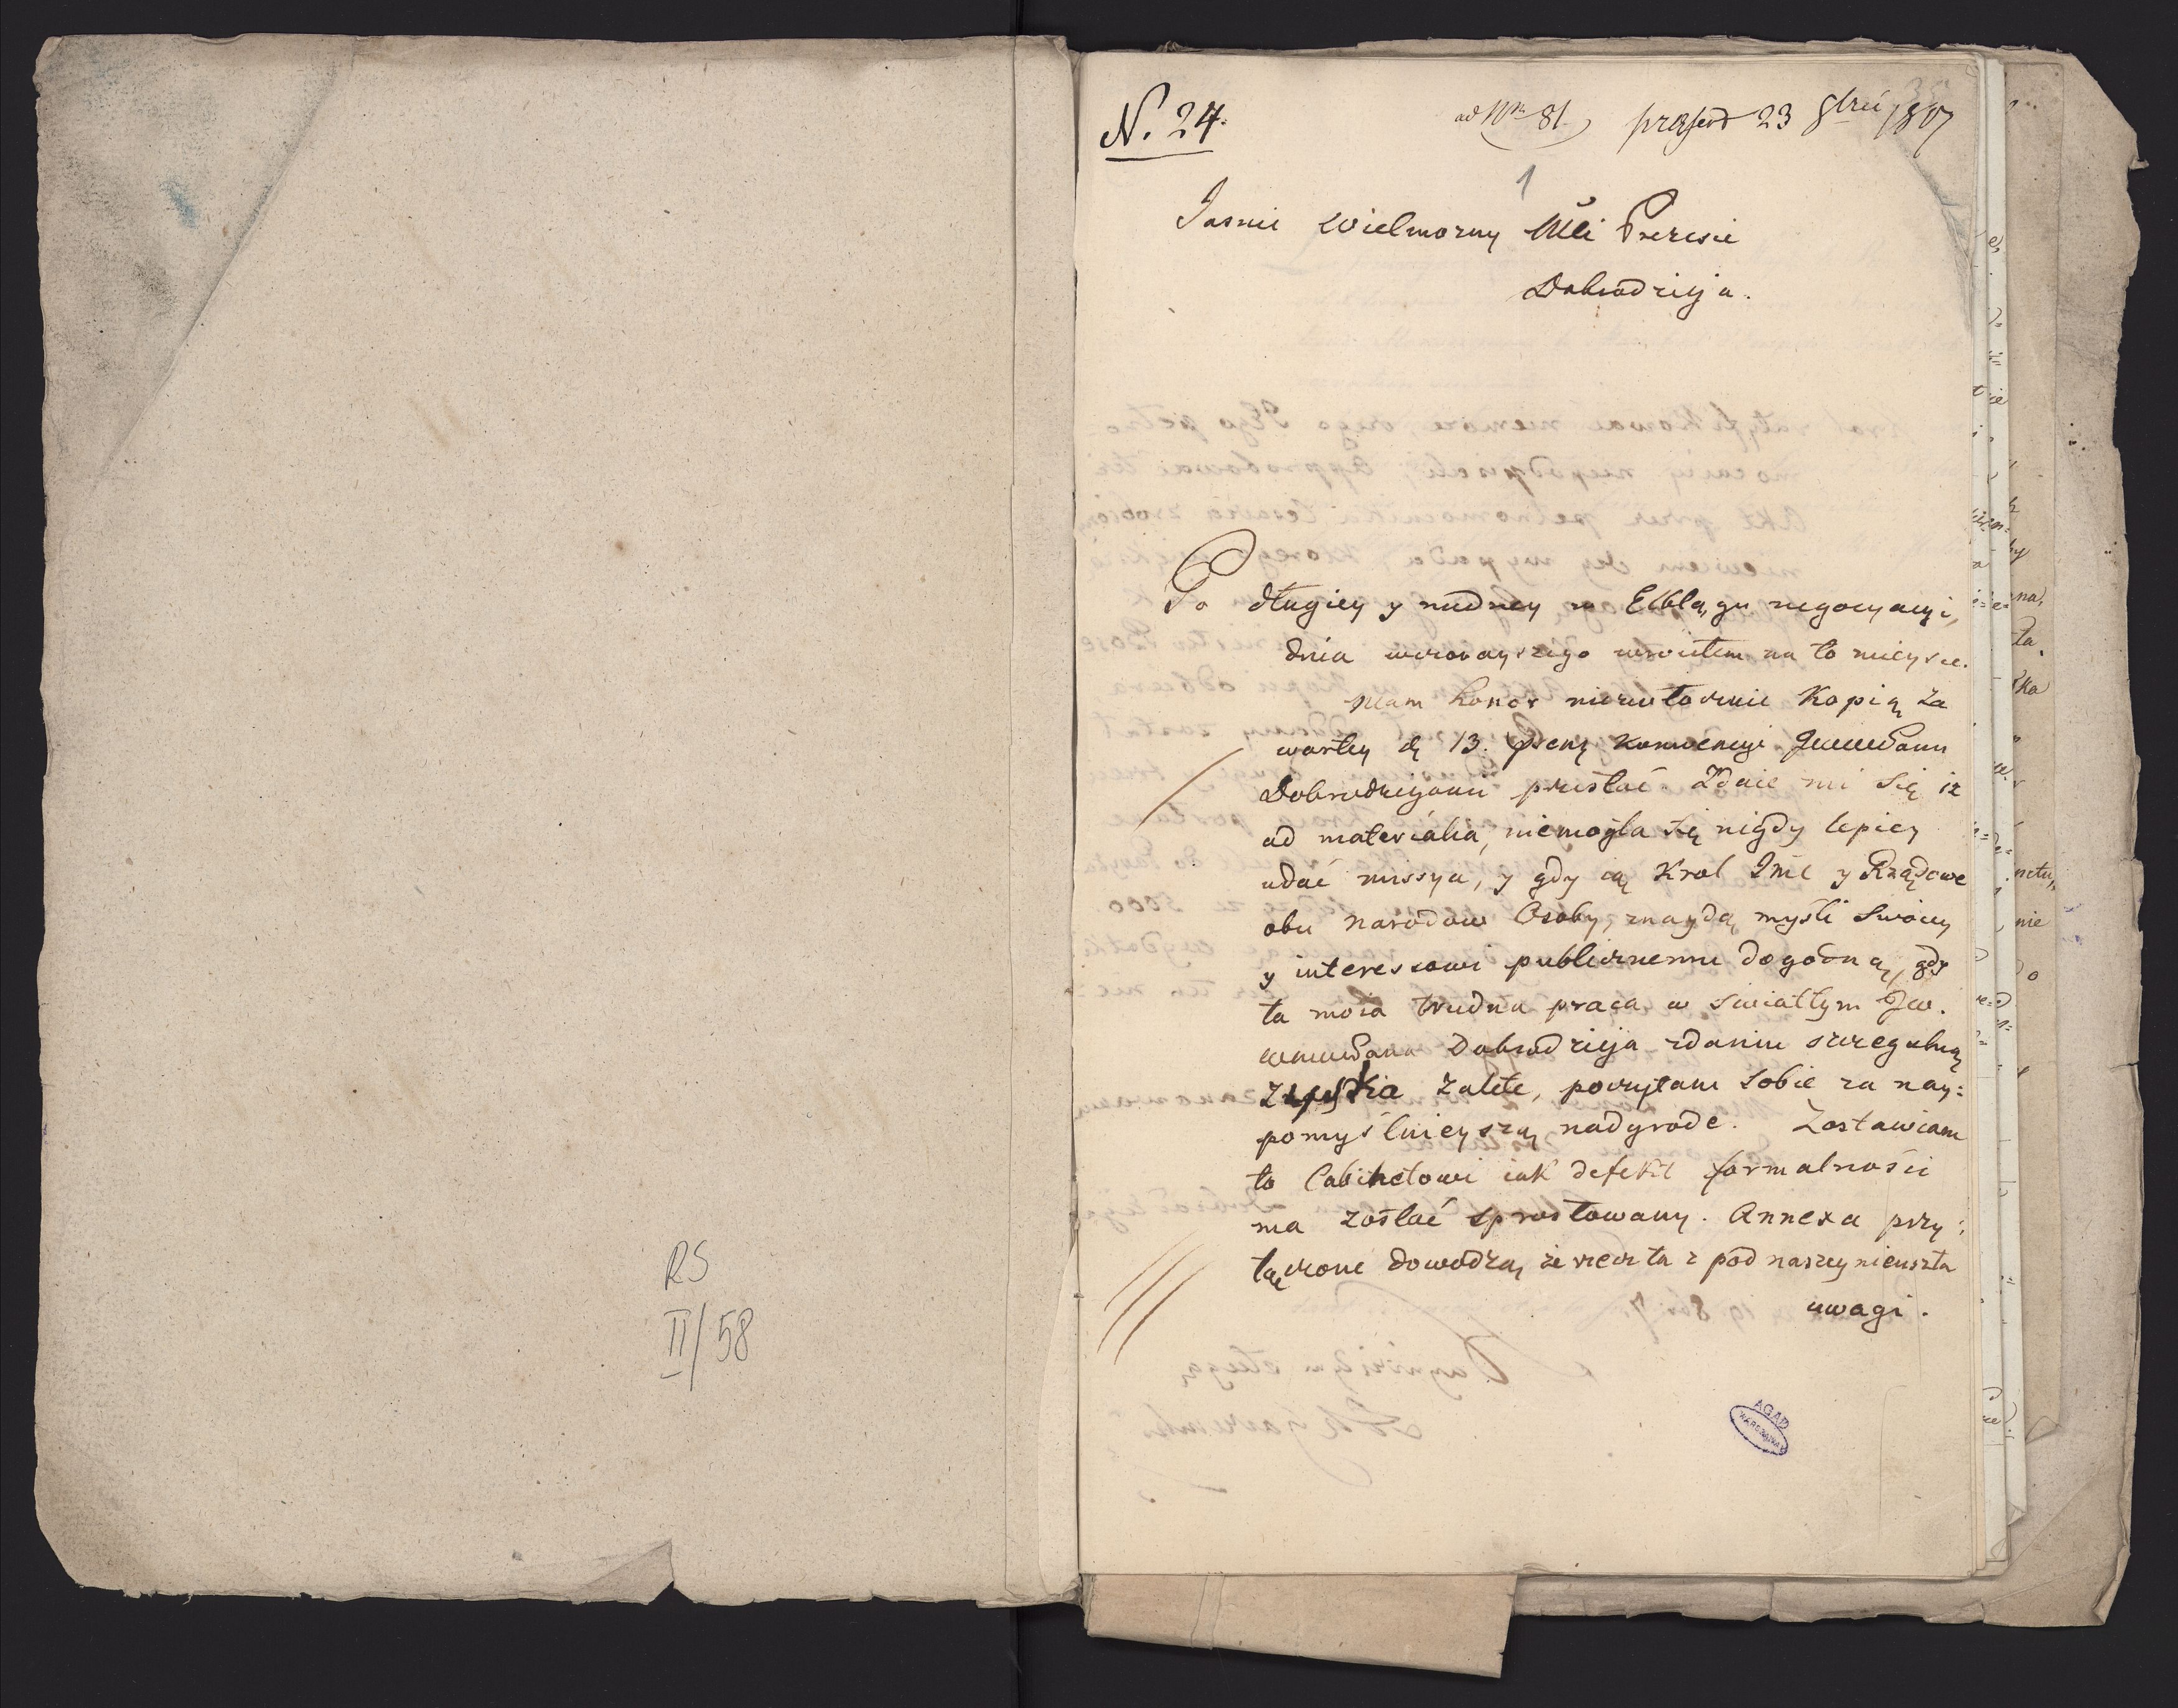 RS
II/58
N. 24.
ad Nrm 81 præsent 23 8bris 1807
1
Jasnie Wielmozny Mci Prezesie
Dobrodzieja.
Po długiey y nudney w Elblągu negocyacyi,
dnia wczorayszego wrocilem na to mieysce.
Mam honor niezwłocznie Kopią za
wartey d. 13. Konwencyi
Dobrodziejowi przesłać. Zdaie mi się iz
ad materialia, niemogła się nigdy lepiey
udać missya, y gdy ią Krol Jmc y Rządowe
obu narodow Osoby, znaydą myśli swoiey
y interessowi publicznemu dogodną, gdy
ta moia trudna praca w swiatłym JW.
Dobrodzieja zdaniu szczegulną
zyska zalete, poczytam sobie za nay=
pomyślnieyszą nadgrode. Zostawiam
to Cabinetowi iak defekt formalności
ma zostać sprostowany. Annexa przy=
łączone dowodzą, że rzecz ta z pod naszey nieuszła
uwagi.
AGAD
WARSZAWA